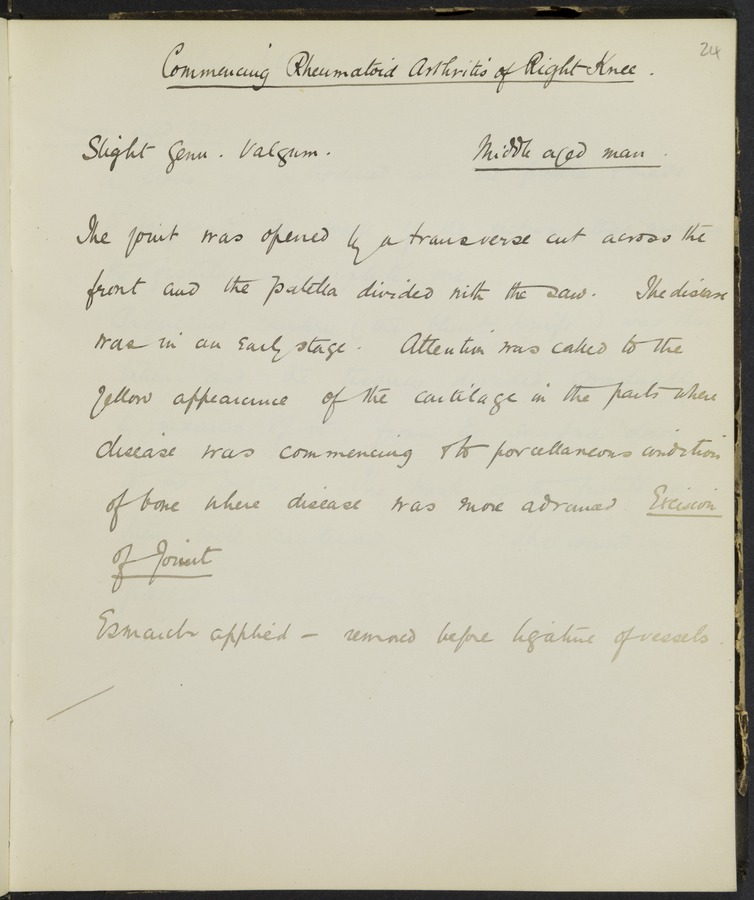 24
Commencing Rheumatoid Arthritis of Right Knee.
Slight Genu. Valgum. Middle aged man.
The joint was opened by a transverse cut across the
front and the patella divided with the saw. The disease
was in an early stage. Attention was called to the
yellow appearance of the cartilage in the parts where
disease was commencing & to porcellaneous condition
of bone where disease was more advanced Excision
of Joint
Esmarch applied – removed before ligature of vessels.